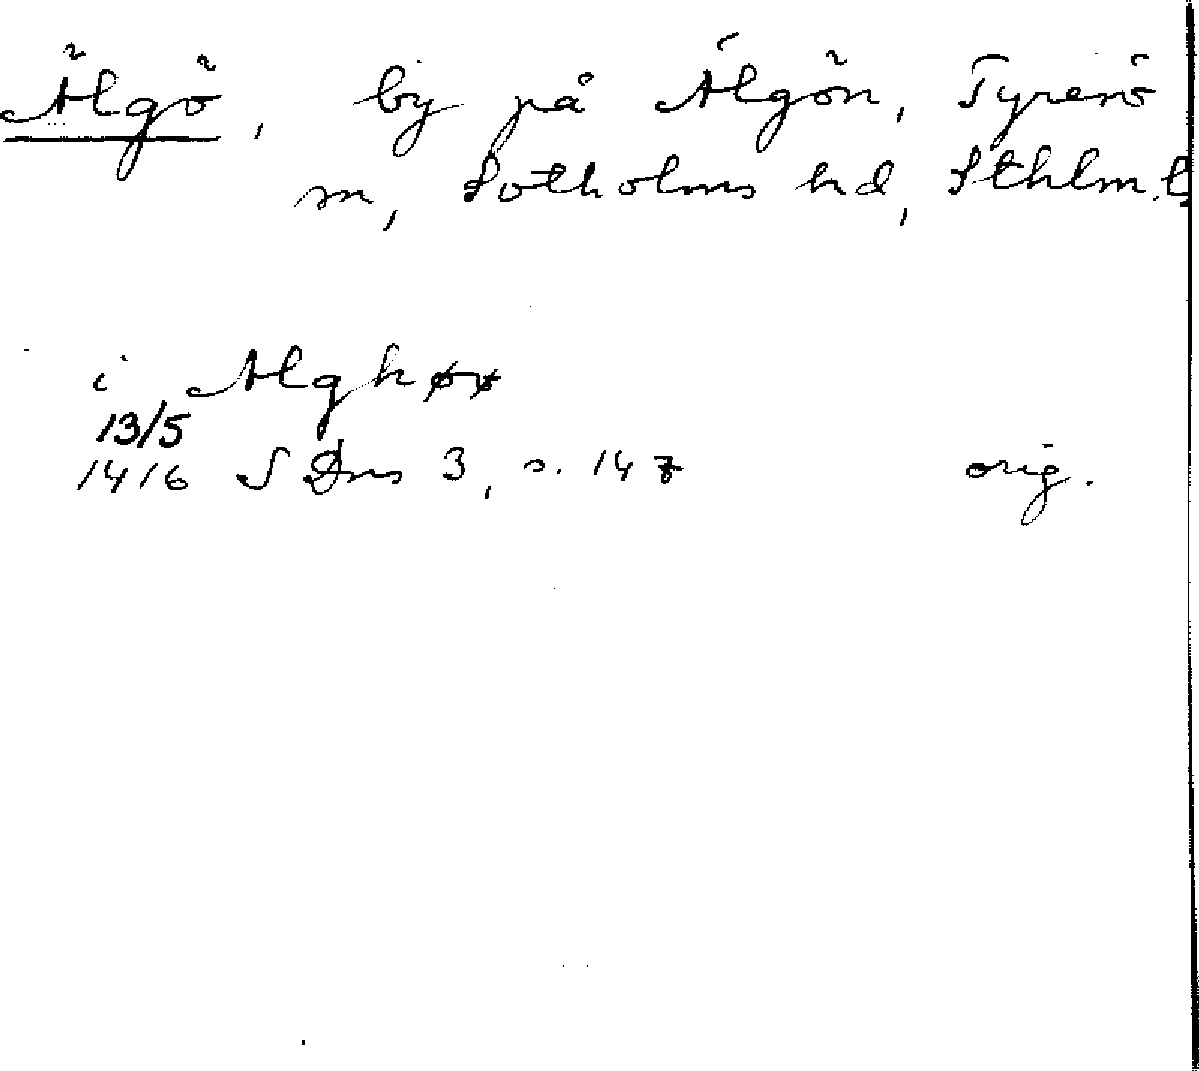 Älgö, by på Älgön, Tyresö
sn, Sotholms hd, Sthlm.l
i Alghøø
13/5
1416 SDns 3, s. 147 orig.